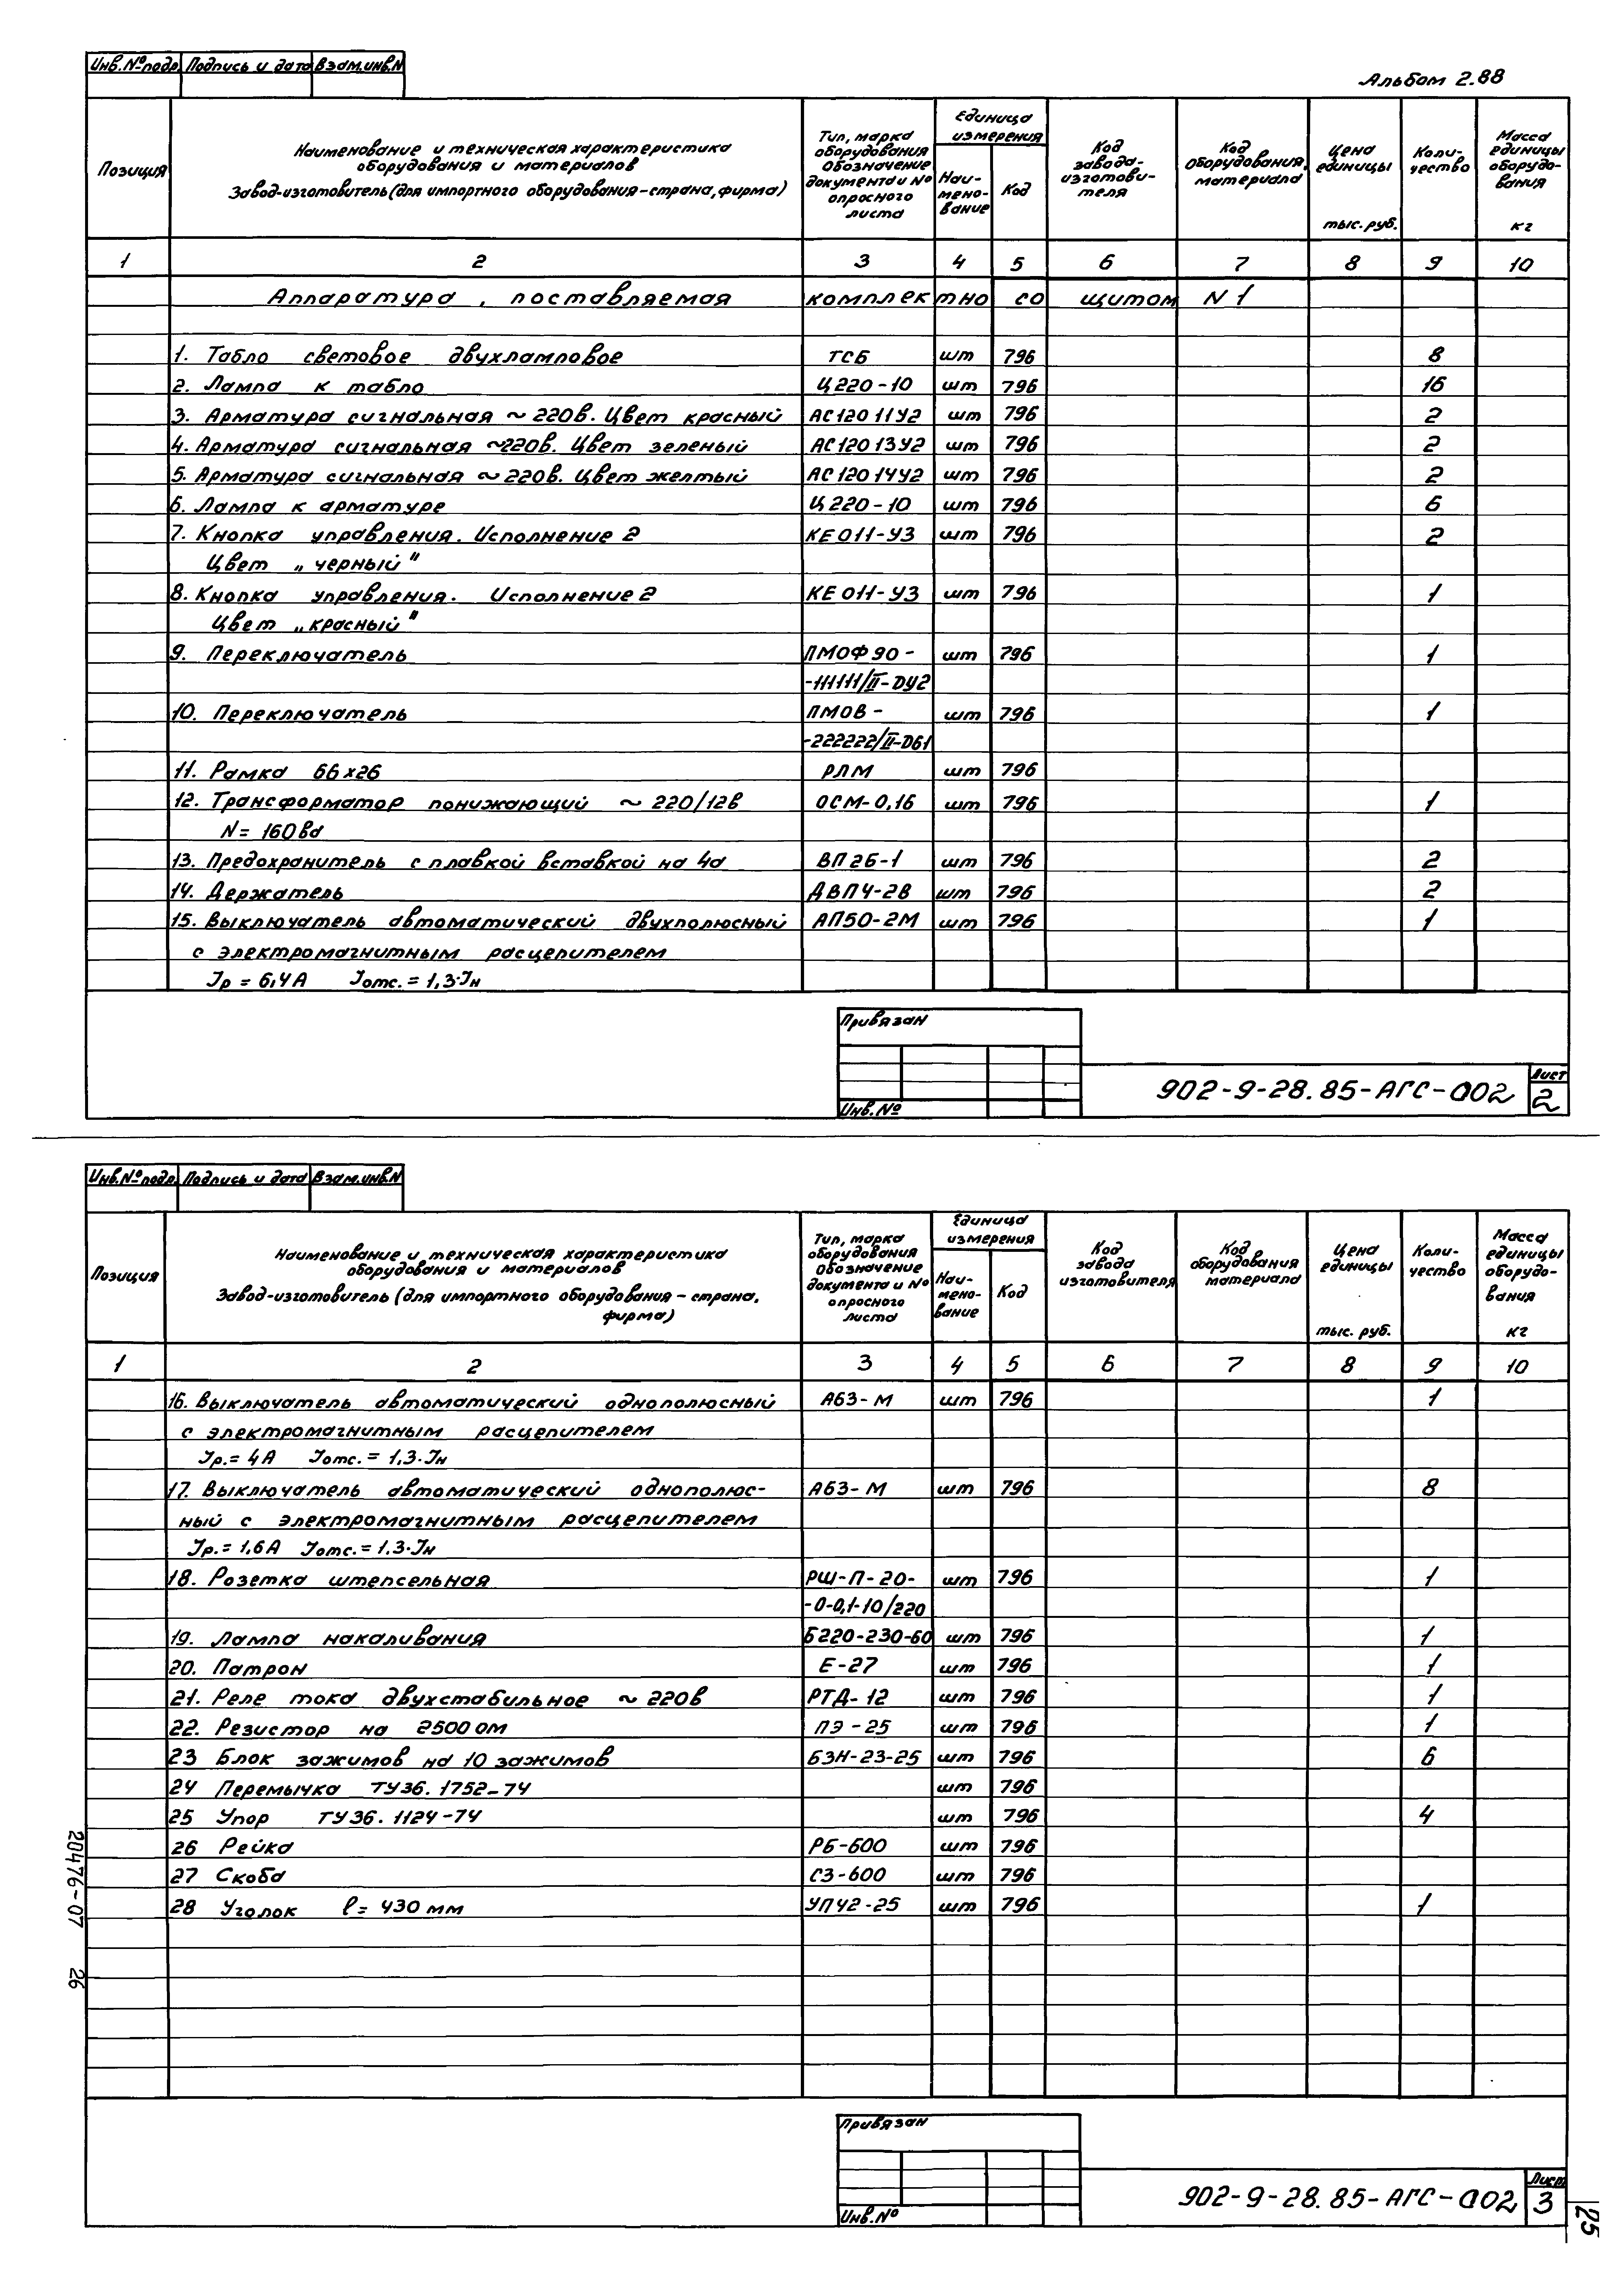 Инв.№подр. Подпись и дата Взам.инв.N
Альбом 2.88
Позиция
Наименование и техническая характеристика
оборудования и материалов
Завод-изготовитель (для импортного оборудования-страна, фирма)
Тип, марка
оборудования
Обозначение
документа и №
опросного
листа
Единица
измерения
Наи-
мено-
вание
Код
Код
завода-
изготови-
теля
Код
оборудования,
материала
Цена
единицы
тыс. руб.
Коли-
чество
Масса
единицы
оборудо-
вания
кг
1 2 3 4 5 6 7 8 9 10
Аппаратура, поставляемая комплектно со щитом N 1
1. Табло световое двухламповое ТСБ шт 796 8
2. Лампа к табло Ц220-10 шт 796 16
3. Арматура сигнальная ~ 220в. Цвет красный АС12011У2 шт 796 2
4. Арматура сигнальная ~220в. Цвет зеленый АС12013У2 шт 796 2
5. Арматура сигнальная ~ 220в. Цвет желтый АС12014У2 шт 796 2
6. Лампа к арматуре Ц220-10 шт 796 6
7. Кнопка управления. Исполнение 2 КЕ011-У3 шт 796 2
Цвет „черный"
8. Кнопка управления. Исполнение 2 КЕ011-У3 шт 796 1
Цвет „красный"
9. Переключатель ПМОФ90- шт 796 1
-111111/II-DУ2
10. Переключатель ПМОВ- шт 796 1
-222222/II-D61
11. Рамка 66х26 РЛМ шт 796
12. Трансформатор понижающий ~ 220/12в ОСМ-0,16 шт 796 1
N= 160ва
13. Предохранитель с плавкой вставкой на 4а ВП2Б-1 шт 796 2
14. Держатель ДВП4-2В шт 796 2
15. Выключатель автоматический двухполюсный АП50-2М шт 796 1
с электромагнитным расцепителем
Iр = 6,4А Iотс. = 1,3·Iн
Привязан
Инв.№
902-9-28.85-АГС-002
Лист
2
Инв.№подр. Подпись и дата Взам.инв.N
Позиция
Наименование и техническая характеристика
оборудования и материалов
Завод-изготовитель (для импортного оборудования - страна,
фирма)
Тип, марка
оборудования
Обозначение
документа и №
опросного
листа
Единица
измерения
Наи-
мено-
вание
Код
Код
завода
изготовителя
Код
оборудования
материала
Цена
единицы
тыс. руб.
Коли-
чество
Масса
единицы
оборудо-
вания
кг
1 2 3 4 5 6 7 8 9 10
16. Выключатель автоматический однополюсный А63-М шт 796 1
с электромагнитным расцепителем
Iр.= 4А Iотс. = 1,3·Iн
17. Выключатель автоматический однополюс- А63-М шт 796 8
ный с электромагнитным расцепителем
Iр.= 1,6А Iотс.= 1,3·Iн
18. Розетка штепсельная РШ-П-20- шт 796 1
-0-0,1-10/220
19. Лампа накаливания Б220-230-60 шт 796 1
20. Патрон Е-27 шт 796 1
21. Реле тока двухстабильное ~ 220в РТД-12 шт 796 1
22. Резистор на 2500 ом ПЭ-25 шт 796 1
23 Блок зажимов на 10 зажимов БЗН-23-25 шт 796 6
24 Перемычка ТУ36.1752-74 шт 796
25 Упор ТУ36.1124-74 шт 796 4
26 Рейка РБ-600 шт 796
27 Скоба СЗ-600 шт 796
28 Уголок l= 430 мм УП42-25 шт 796 1
20476-07 26
Привязан
Инв.№
902-9-28.85-АГС-002
Лист
3
25